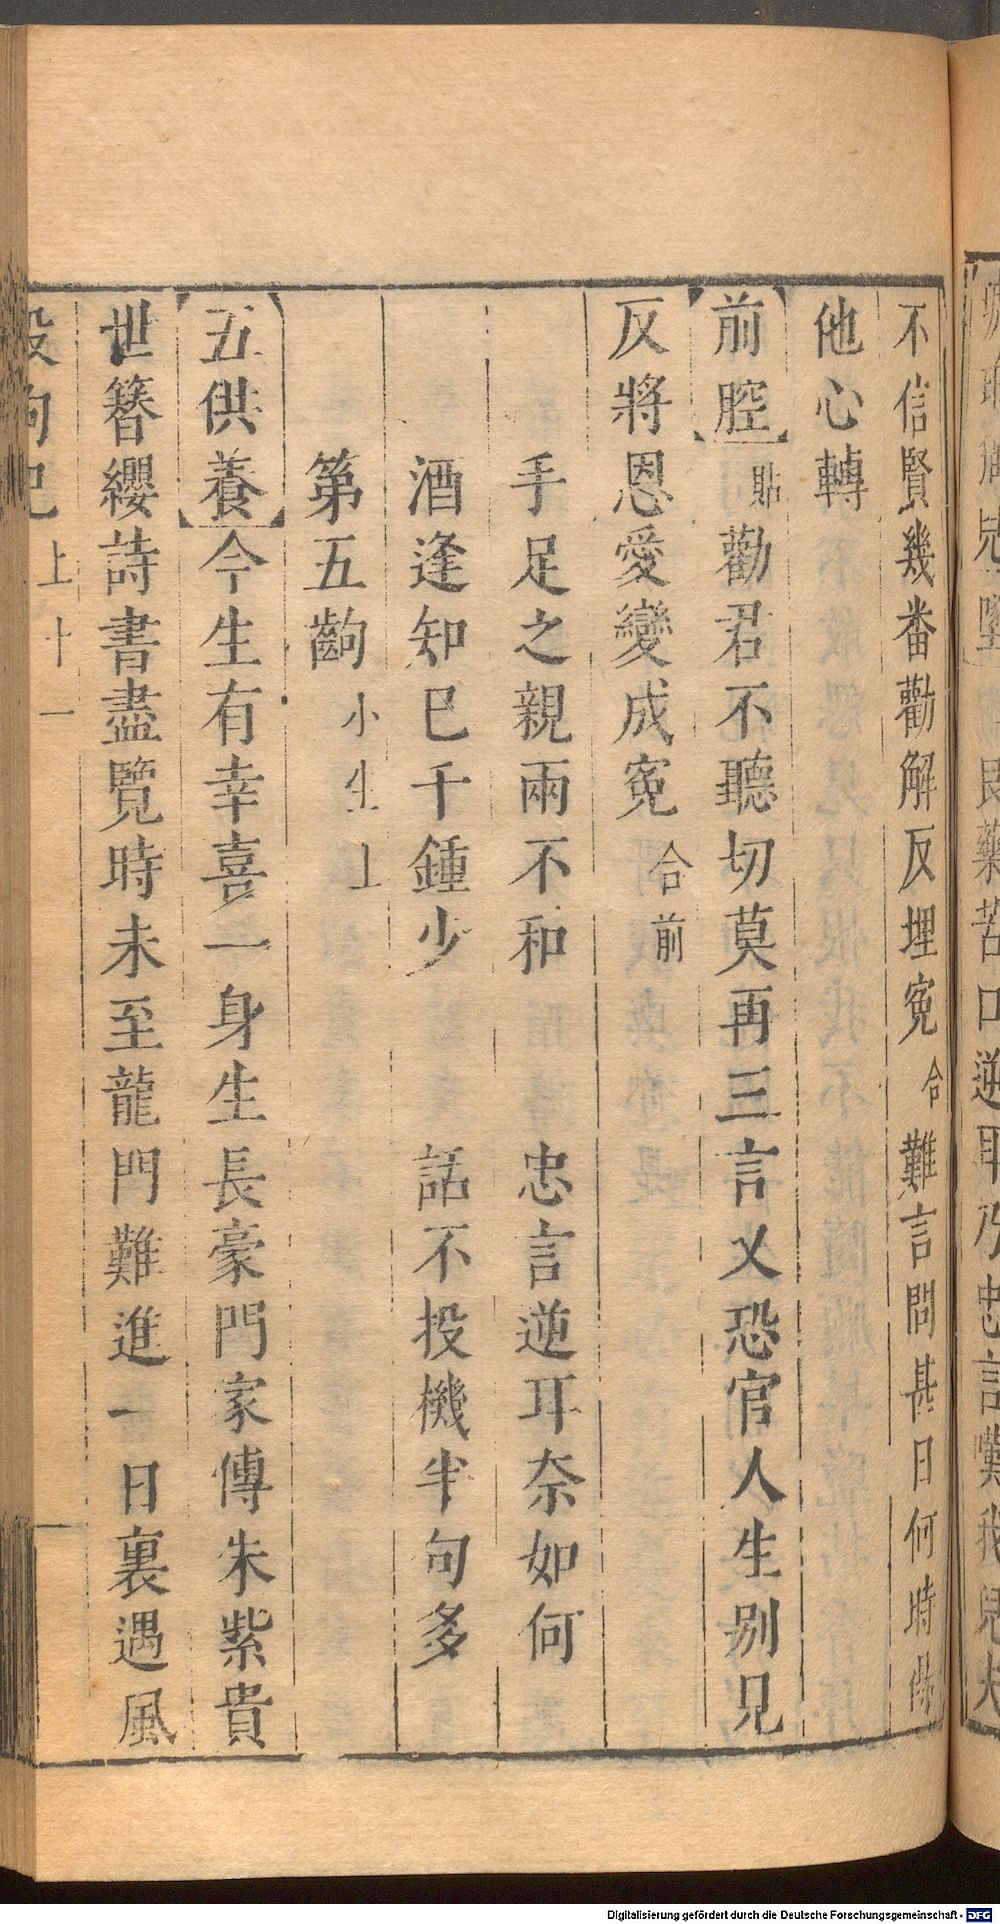 不信賢幾畨勸解反埋寃合難言問甚日何時
他心轉
前腔貼勸君不聽切莫再三言乂恐官人生别見
反將恩愛變成寃合前
手足之親兩不和 忠言逆耳奈如何
酒逢知巳千鍾少 話不投機半句多
第五齣小生上
五供養今生有幸喜一身生長豪門家傳朱紫貴
世簪纓詩書盡覽時未至龍門難進一日裏遇風
殺狗記 上 十一
Digitalisierung gefördert durch die Deutsche Forschungsgemeinschaft - DFG